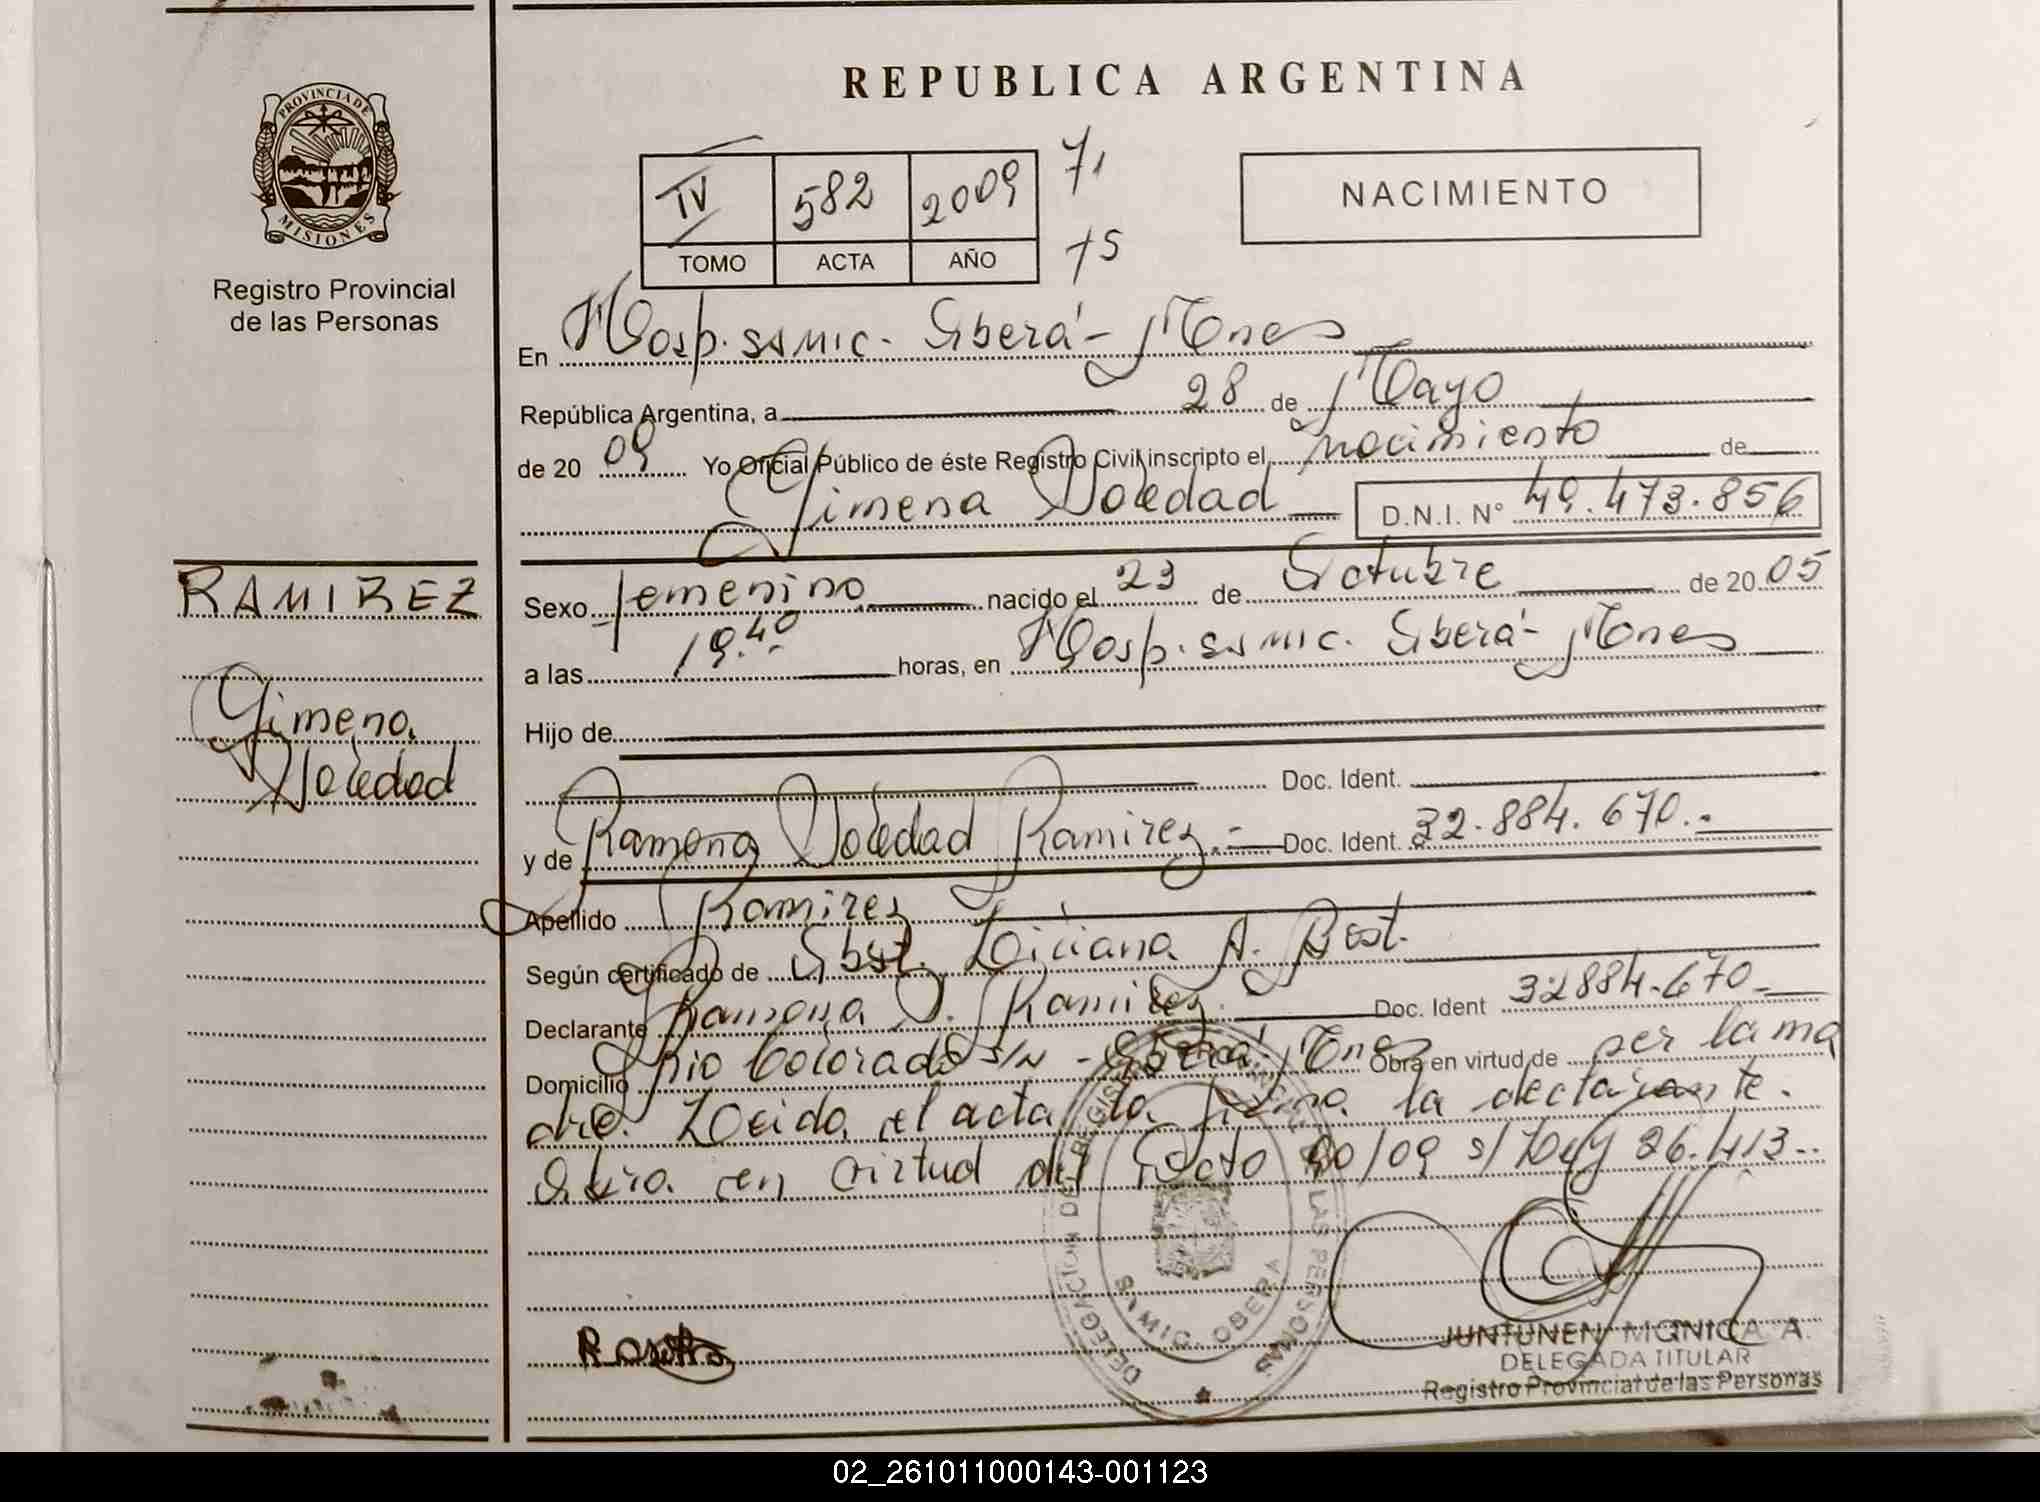 REPUBLICA ARGENTINA
PROVINCIA DE
MISIONES
Registro Provincial
de las Personas
IV 582 2009 71
TOMO ACTA AÑO 75
NACIMIENTO
En Hosp. SSMIC. Oberá - Mnes
República Argentina, a 28 de Mayo
de 20 09 Yo Oficial Público de éste Registro Civil inscripto el nacimiento de
Gimena Soledad D.N.I. N° 49.473.856
RAMIREZ
Gimena
Soledad
Sexo femenino nacido el 23 de Octubre de 20 05
a las 19.40 horas, en Hosp. SSMIC. Oberá - Mnes
Hijo de
Doc. Ident.
y de Ramona Soledad Ramirez.- Doc. Ident. 32.884.670.-
Apellido Ramirez
Según certificado de Obst. Liciana A. Best.
Declarante Ramona S. Ramirez.- Doc. Ident 32884.670-
Domicilio Rio Colorado S/N - Oberá, Mnes Obra en virtud de per la ma
dre. Leida el acta la firma la declarante.
Obra en virtud del Dcto 90/09 s/ Ley 26.413..
DELEGACION DE REGISTRO LAS PERSONAS
S.A.MIC. OBERA
JUNTUNEN MONICA A.
DELEGADA TITULAR
Registro Provincial de las Personas
02_261011000143-001123